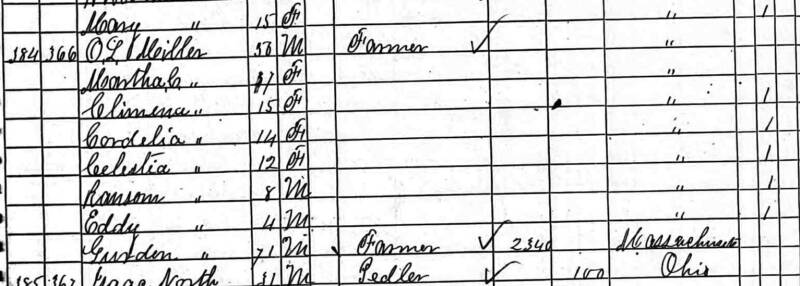 Mary " 15 F " 1
384 366 O.L. Miller M Farmer ✓ "
Martha C " 37 F "
Climena " 15 F " 1
Cordelia " 14 F " 1
Celestia " 12 F " 1
Ransom " 8 M " 1
Eddy " 4 M " 1
Gurden " 71 M Farmer ✓ 2340
385 367 Isaac North 31 M Pedler ✓ 100 Ohio